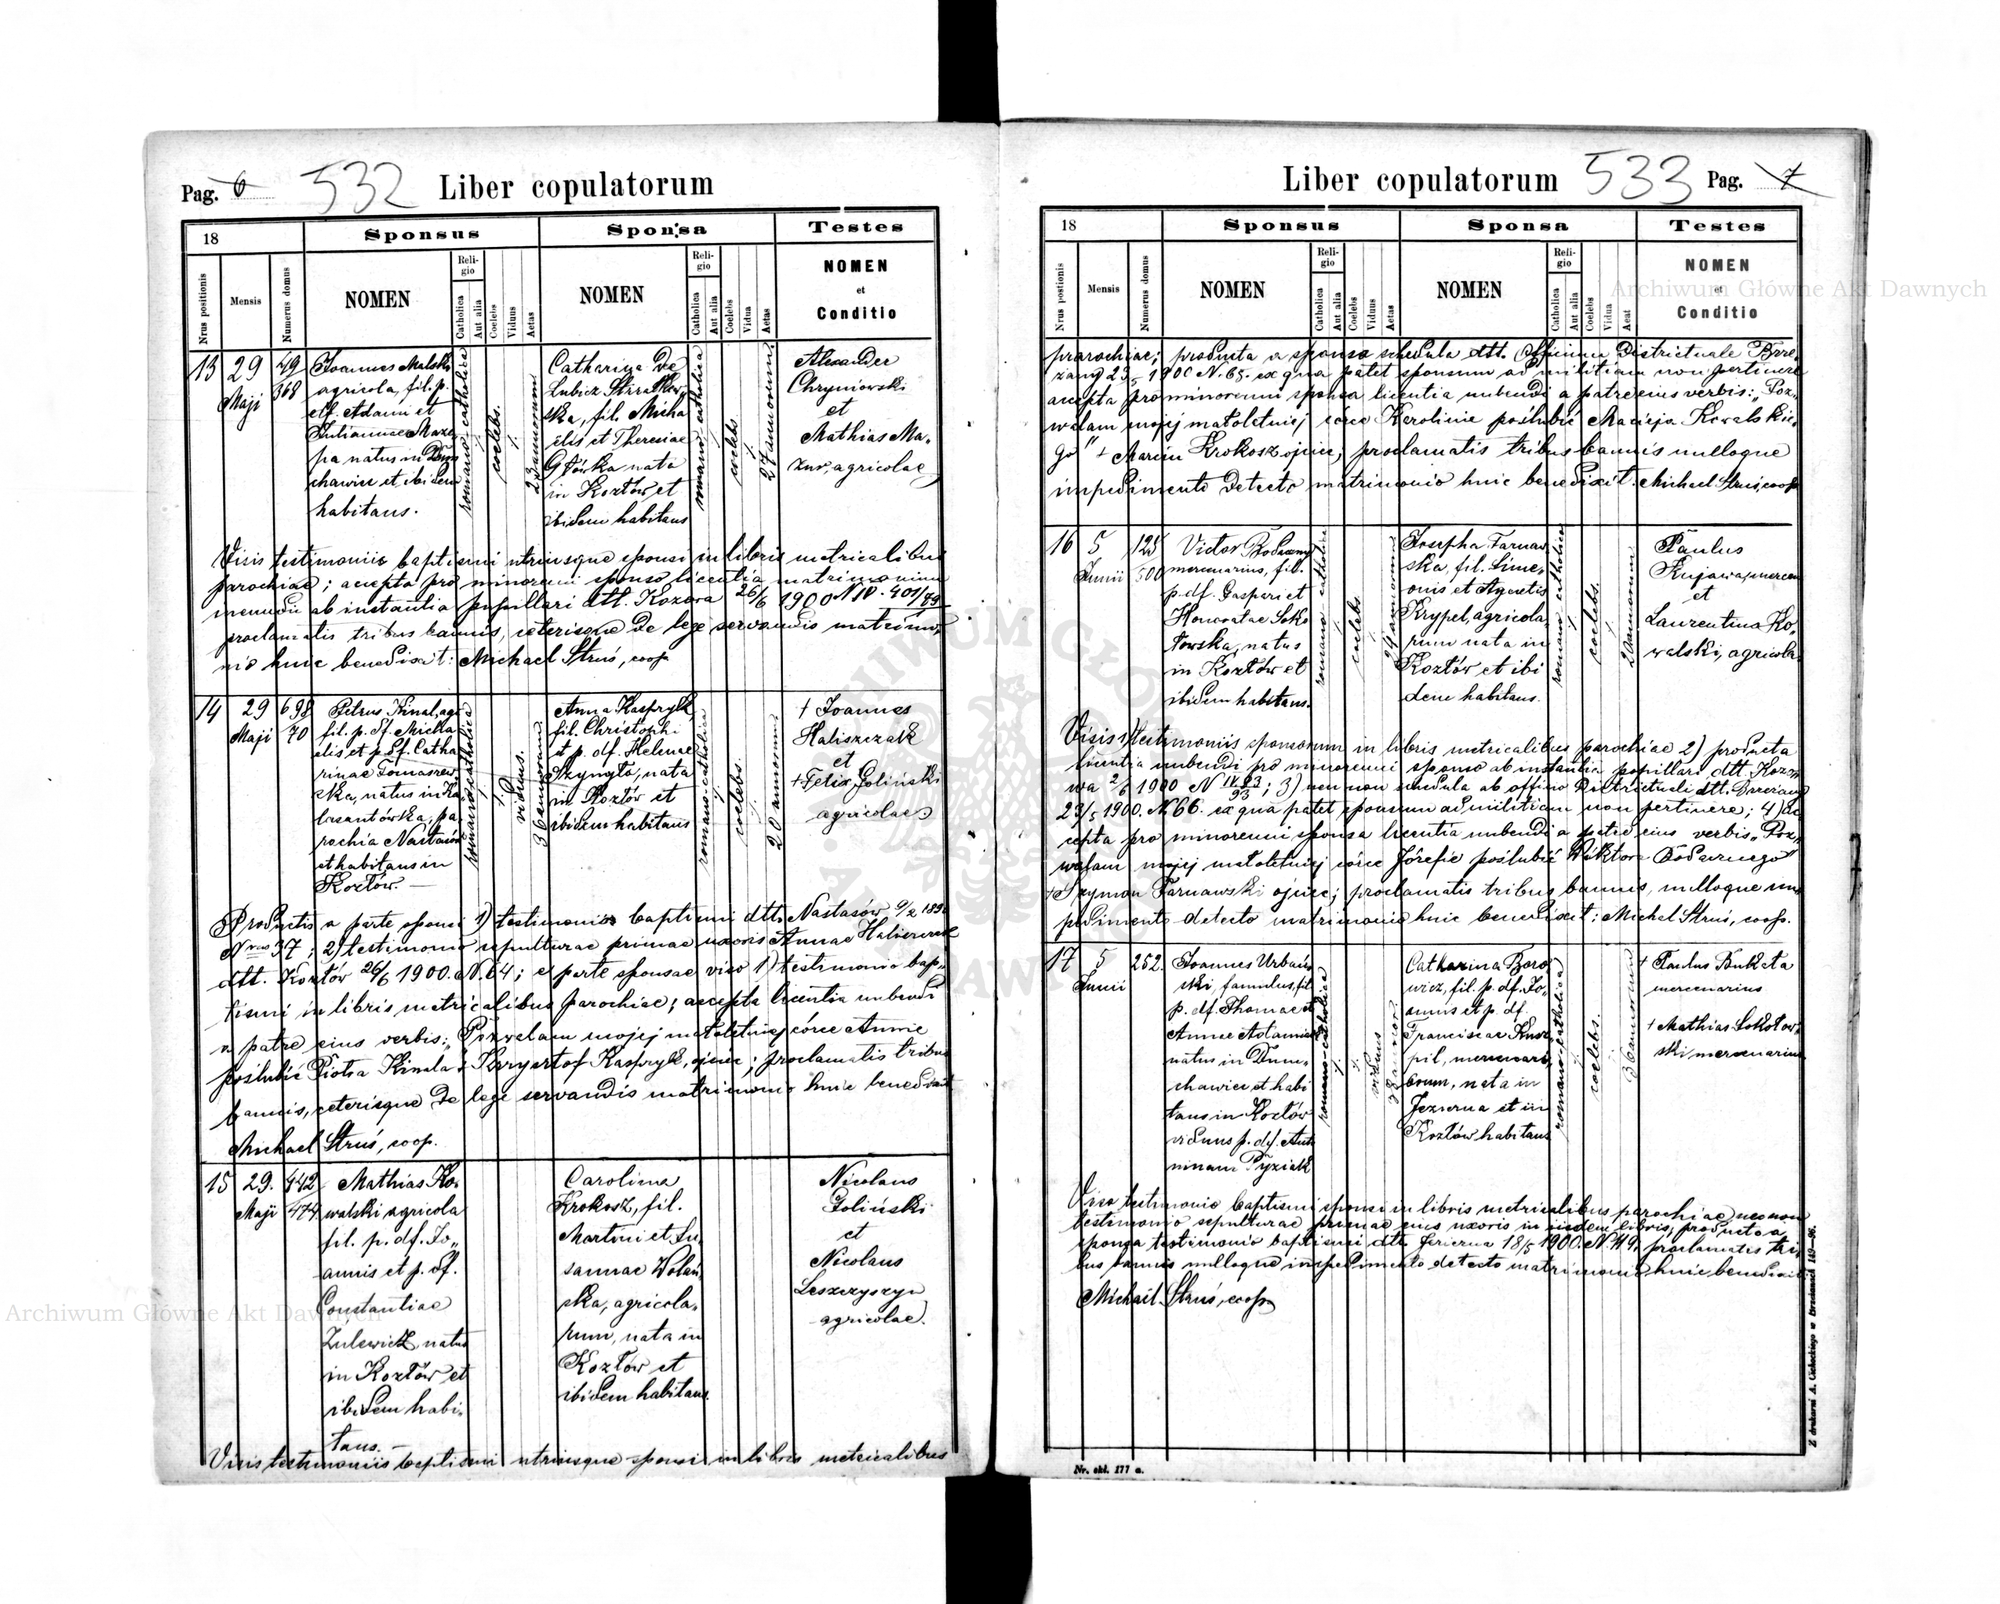 Pag. 6 532 Liber copulatorum
18 Sponsus Sponsa Testes
Nrus positionis Mensis Numerus domus NOMEN Religio Catholica Aut alia Coelebs Viduus Aetas NOMEN Religio Catholica Aut alia Coelebs Vidua Aetas NOMEN et Conditio
13
29 Maji
49
368
Joannes Malski
agricola, fil. p.
df. Adami et
Julianna
pa natus in
chawiec et ibidem
habitans.
romano catholica
coelebs
23 annorum
Catharina De
Lubicz
ska, fil. Micha
elis et Theresiae
Górka nata
in Kozłów et
ibidem habitans
romano catholica
coelebs
27 annorum
Alexander
Chryniowski
et
Mathias Ma-
zur, agricolae
Visis testimoniis baptismi utriusque sponsi in libris metricalibus
parochiae; accepta pro minorenni sponso licentia matrimonium
ineundi ab instantia pupillari dtt. Kozowa 26/5 1900 N IV. 401/99
proclamatis tribus bannis, ceterisque de lege servandis matrimo-
nio huic benedixit: Michael Struś, coop.
14
29
Maji
698
70
Petrus Kinal, agr.
fil. p. df. Micha
elis et p. df. Catha
rinae Tomaszew
ska, natus in
pa
rochia Nastasów
et habitans in
Kozłów.
romano catholica
viduus.
36 annorum
Anna Kaspryk,
fil. Christophi
et p. df. Helenae
Szynyło, nata
in Kozłów et
ibidem habitans
romano-catholica
coelebs.
20 annorum
† Joannes
Haliszczak
et
† Felix Goliński
agricolae
Productis a parte sponsi 1) testimonio baptismi dtt. Nastasów
37; 2) testimonio sepulturae primae uxoris Annae
dtt. Kozłów 26/5 1900. N. 64; e parte sponsae viso 1) testimonio bap-
tismi in libris metricalibus parochiae; accepta licentia nubendi
a patre eius verbis: „Pozwalam mojej małoletniej córce Annie
poślubić Piotra Kinala † Krzysztof Kaspryk, ojciec; proclamatis tribus
bannis, ceterisque de lege servandis matrimonio huic benedixit
Michael Struś, coop.
15
29.
Maji
442
474
Mathias Ko-
walski agricola
fil. p. df. Jo-
annis et p. df.
Constantiae
Zulewicz natus
in Kozłów et
ibidem habi-
tans.
Carolina
Krokosz, fil.
Martini et Su-
sannae Wolań-
ska, agricola-
rum, nata in
Kozłów et
ibidem habitans.
Nicolaus
Goliński
et
Nicolaus
Leszczyszyn
agricolae.
Visis testimoniis baptismi utriusque sponsi in libris metricalibus
Liber copulatorum 533 Pag. 7
18 Sponsus Sponsa Testes
Nrus postionis Mensis Numerus domus NOMEN Religio Catholica Aut alia Coelebs Viduus Aetas NOMEN Religio Catholica Aut alia Coelebs Vidua Aetat NOMEN et Conditio
parochiae; producta a sponso schedula dtt. Officium Districtuale Brze-
żany 23/5 1900 N. 65. ex qua patet sponsum ad militiam non pertinere
accepta pro minorenni sponsa licentia nubendi a patre eius verbis: „Poz-
walam mojej małoletniej córce Karolinie poślubić Macieja Kowalskie-
go" † Marcin Krokosz ojciec; proclamatis tribus bannis nulloque
impedimento detecto matrimonio huic benedixit. Michael Struś, coop.
16
5
Junii
125
500
Victor Bodnarny
mercenarius, fil.
p. df. Gaspari et
Honoratae Soko
łowska, natus
in Kozłów et
ibidem habitans.
romano catholica
coelebs
24 annorum
Josepha Tarnaw
ska, fil. Sime-
onis et Agnetis
Krypel, agricola-
rum nata in
Kozłów et ibi
dem habitans.
romano catholica
coelebs.
20 annorum
Paulus
Kujawa, mercen
et
Laurentius Ko-
walski, agricolae
Visis 1) testimoniis sponsorum in libris metricalibus parochiae 2) producta
licentia nubendi pro minorenni sponso ab instantia pupillari dtt. Kozo-
wa 2/6 1900 N; 3) nec non schedula ab officio Districtuali dtt. Brzeżany
23/5 1900. N. 66. ex qua patet sponsum ad militiam non pertinere; 4) ac
cepta pro minorenni sponsa licentia nubendi a patre eius verbis „Poz-
walam mojej małoletniej córce Józefie poślubić Wiktora Bodnarnego"
† Szymon Tarnawski ojciec; proclamatis tribus bannis, nulloque im
pedimento detecto matrimonio huic benedixit: Michel Struś, coop.
17
5
Junii
252.
Joannes Urbań
ski, famulus, fil
p. df. Thomae et
Annae Adamiak
natus in Dmu-
chawiec et habi
tans in Kozłów
viduus p. df. Anto
ninam Pyziak
romano-catholica
viduus
Catharina Boro
wicz, fil. p. df. Jo-
annis et p. df.
Franciscae Kusz
pil, mercenari-
orum, nata in
Jezierna et in
Kozłów habitans
romano-catholica
coelebs.
annorum
† Paulus Buketa
mercenarius
† Mathias Sokołow-
ski mercenarius
Viso testimonio baptismi sponsi in libris metricalibus parochiae nec non
testimonio sepulturae primae eius uxoris in iisdem libris; producto a
sponsa testimonio baptismi dtt. Jezierna 18/5 1900. N. 119, proclamatis tri-
bus bannis nulloque impedimento detecto matrimonio huic benedixit
Michael Struś, coop.
Nr. skł. 177 a.
Z drukarni A. Cichockiego w Brzeżanach 149—96.
Archiwum Główne Akt Dawnych
Archiwum Główne Akt Dawnych